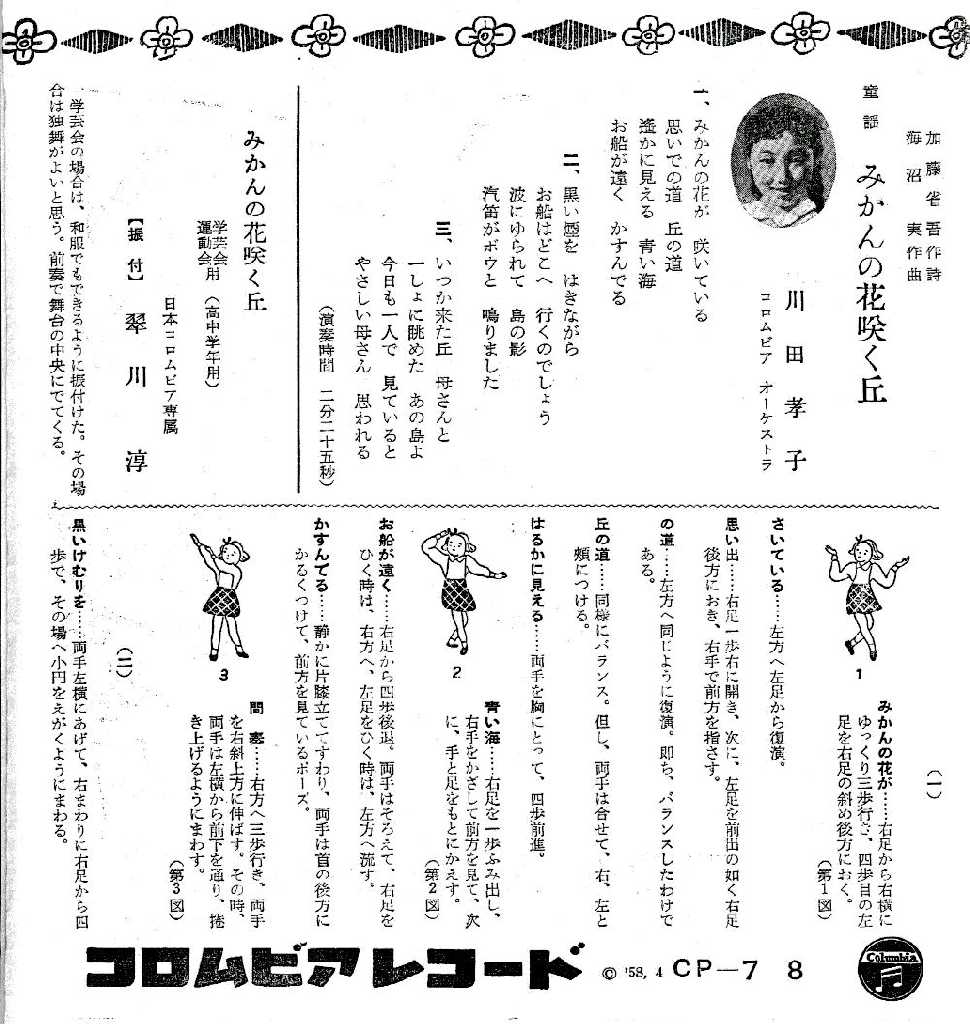 加藤省吾作詩
海沼実作曲
童謡 みかんの花咲く丘
川田孝子
コロムビア オーケストラ
一、みかんの花が 咲いている
思いでの道 丘の道
遙かに見える 青い海
お船が遠く かすんでる
二、黒い煙を はきながら
お船はどこへ 行くのでしょう
波にゆられて 島の影
汽笛がボウと 鳴りました
三、いつか来た丘 母さんと
一しょに眺めた あの島よ
今日も一人で 見ていると
やさしい母さん 思われる
(演奏時間 二分二十五秒)
みかんの花咲く丘
学芸会用
運動会
(高中学年用)
日本コロムビア専属
【振付】 翠川淳
学芸会の場合は、和服でもできるように振付けた。その場
合は独舞がよいと思う。前奏で舞台の中央にでてくる。
(一)
みかんの花が……右足から右横に
ゆっくり三歩行き、四歩目の左
足を右足の斜め後方におく。
(第1図)
1
さいている……左方へ左足から復演。
思い出……右足一歩右に開き、次に、左足を前出の如く右足
後方におき、右手で前方を指さす。
の道……左方へ同じように復演。即ち、バランスしたわけで
ある。
丘の道……同様にバランス。但し、両手は合せて、右、左と
頬につける。
はるかに見える……両手を胸にとって、四歩前進。
青い海……右足を一歩ふみ出し、
右手をかざして前方を見て、次
に、手と足をもとにかえす。
(第2図)
2
お船が遠く……右足から四歩後退。両手はそろえて、右足を
ひく時は、右方へ、左足をひく時は、左方へ流す。
かすんでる……静かに片膝立ててすわり、両手は首の後方に
かるくつけて、前方を見ているポーズ。
間奏……右方へ三歩行き、両手
を右斜上方に伸ばす。その時、
両手は左横から前下を通り、捲
き上げるようにまわす。
(第3図)
3
(二)
黒いけむりを……両手左横にあげて、右まわりに右足から四
歩で、その場へ小円をえがくようにまわる。
コロムビアレコード © '58, 4 CP-7 8
Columbia